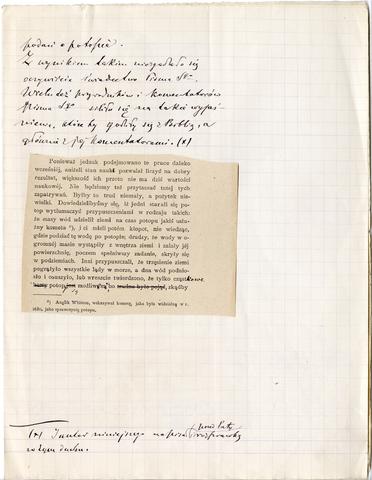 podań o potopie.
Z wynikiem takim niezgadzało się
oczywiście świadectwo Pisma Sw.
Wielu też przyrodników i komentatorów
Pisma Sw siliło się na takie wyjaś
nienie, któreby godziły się z Biblją, a
głównie z jej komentatorami. (x)
Ponieważ jednak podejmowano te prace daleko
wcześniej, aniżeli stan nauki pozwalał liczyć na dobry
rezultat, większość ich przeto nie ma dziś wartości
naukowej. Nie będziemy też przytaczać tutaj tych
zapatrywań. Byłby to trud niemały, a pożytek nie-
wielki. Dowiedzielibyśmy się, iż jedni starali się po-
top wytłumaczyć przypuszczeniami w rodzaju takich:
że masy wód udzielił ziemi na czas potopu jakiś usłu-
żny kometa ¹), i ci mieli potem kłopot, nie wiedząc,
gdzie podziać tę wodę po potopie; drudzy, że wody w o-
gromnej masie wystąpiły z wnętrza ziemi i zalały jej
powierzchnię, poczem spełniwszy zadanie, skryły się
w podziemiach. Inni przypuszczali, że trzęsienie ziemi
pogrążyło wszystkie lądy w morze, a dna wód podnio-
sło i osuszyło, lub wreszcie twierdzono, że tylko cząstkowe
potopy są możliwe, bo trudno było pojąć, skądby
¹) Anglik Whiston, wskazywał kometę, jako była widzialną w r.
1680, jako sprawczynię potopu.
(x) I autor niniejszego napisał przed laty rozprawkę
w tym duchu.